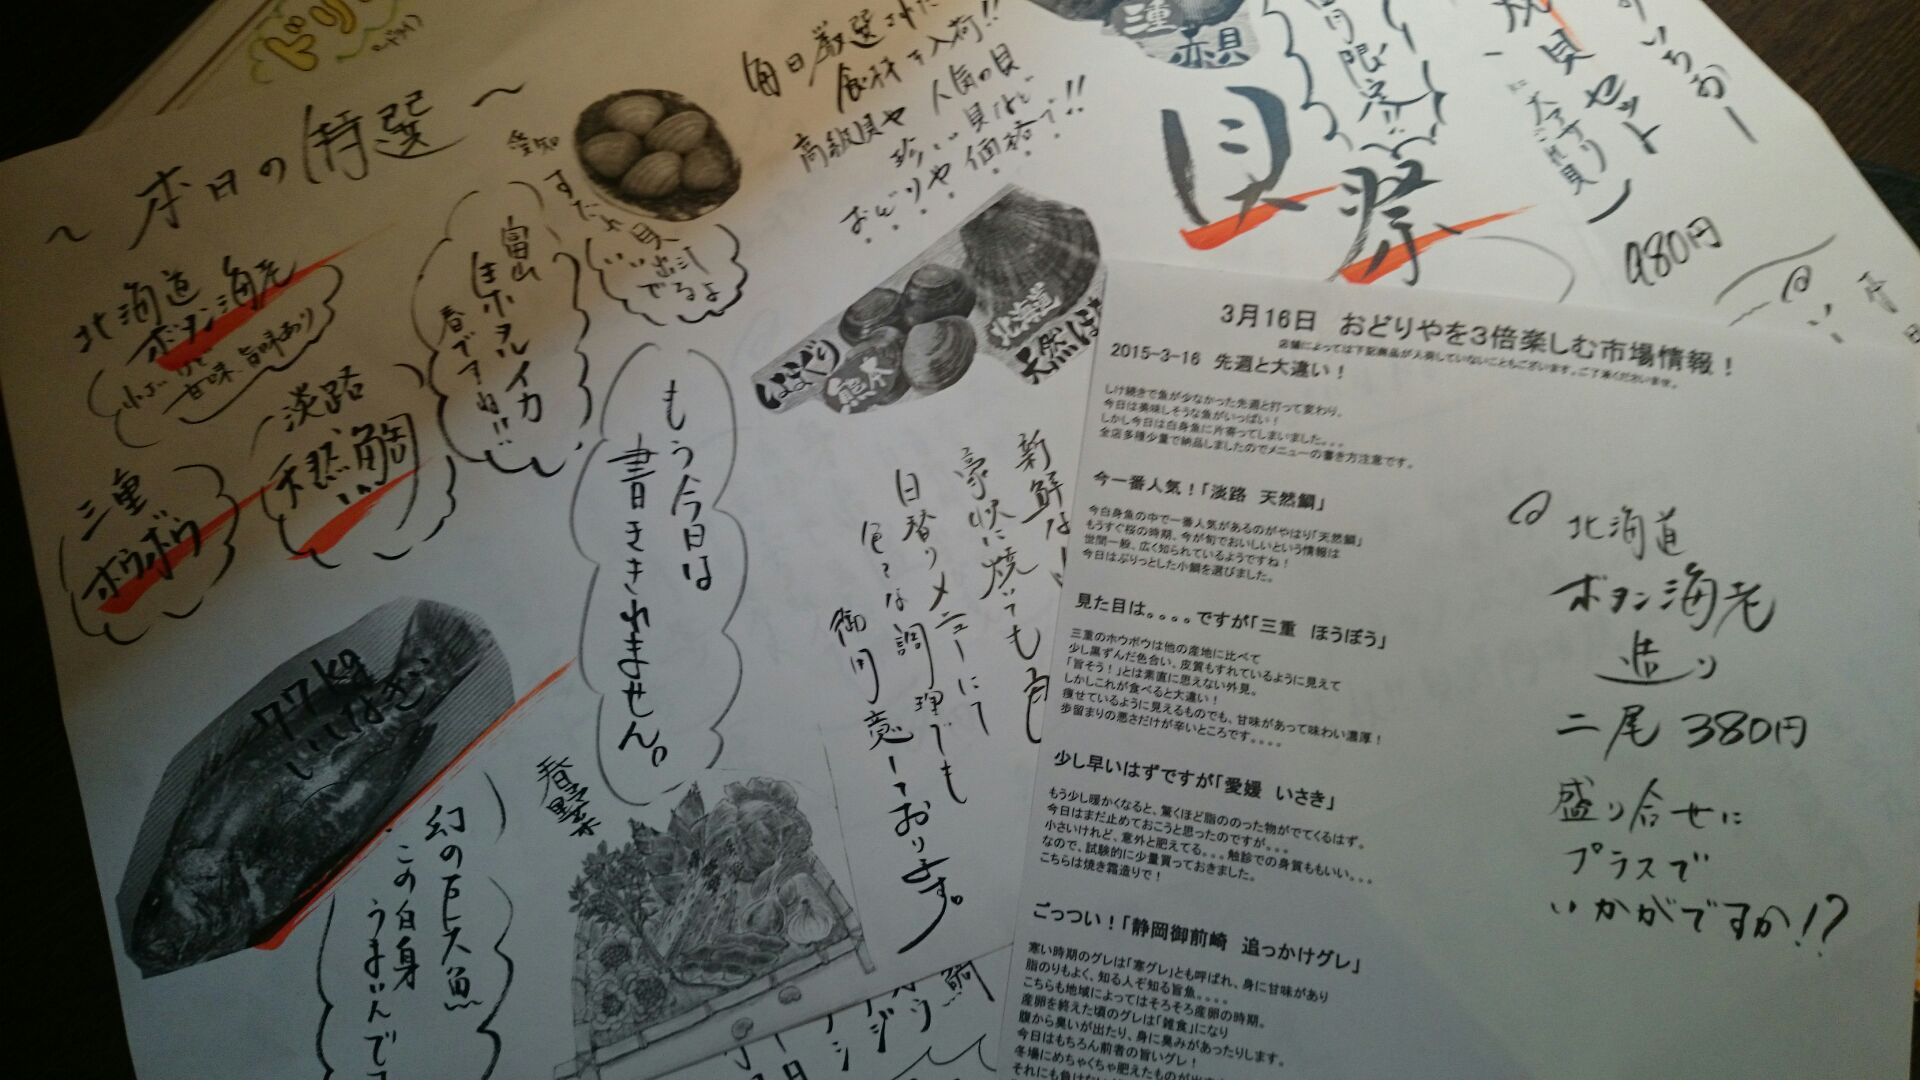 〜本日の特選〜
北海道
ボタン海老
甘味、旨味あり
淡路
天然鯛
三重
ホウボウ
富山
生ホタルイカ
春ですね!!
愛知
すだれ貝
いい出汁
でるよ
もう今日は
書ききれません。
77kg
いしなぎ
幻の巨大魚
この白身
うまいんで
春野菜
毎日厳選された
食材を入荷!!
高級貝や人気の貝
珍しい貝など
おどりや価格で!!
三重
赤貝
貝祭
貝セット
大アサリ
980円
はまぐり
熊本
北海道
新鮮な
豪快に焼いても
日替りメニューにて
色々な調理でも
御用意しております。
3月16日 おどりやを3倍楽しむ市場情報！
店舗によっては下記商品が入荷していないこともございます。ご了承くださいませ。
2015-3-16 先週と大違い！
しけ続きで魚が少なかった先週と打って変わり、
今日は美味しそうな魚がいっぱい！
しかし今日は白身魚に片寄ってしまいました。。。
全店多種少量で納品しましたのでメニューの書き方注意です。
今一番人気！「淡路 天然鯛」
今白身魚の中で一番人気があるのがやはり「天然鯛」
もうすぐ桜の時期、今が旬でおいしいという情報は
世間一般、広く知られているようですね！
今日はぷりっとした小鯛を選びました。
見た目は。。。。ですが「三重 ほうぼう」
三重のホウボウは他の産地に比べて
少し黒ずんだ色合い、皮質もすれているように見えて
「旨そう！」とは素直に思えない外見。
しかしこれが食べると大違い！
痩せているように見えるものでも、甘味があって味わい濃厚！
歩留まりの悪さだけが辛いところです。。。。
少し早いはずですが「愛媛 いさき」
もう少し暖かくなると、驚くほど脂ののった物がでてくるはず。
今日はまだ止めておこうと思ったのですが。。。
小さいけれど、意外と肥えてる。。。触診での身質ももいい。。。
なので、試験的に少量買っておきました。
こちらは焼き霜造りで！
ごっつい！「静岡御前崎 追っかけグレ」
寒い時期のグレは「寒グレ」とも呼ばれ、身に甘味があり
脂のりもよく、知る人ぞ知る旨魚。。。。
こちらも地域によってはそろそろ産卵の時期。
産卵を終えた頃のグレは「雑食」になり
腹から臭いが出たり、身に臭みがあったりします。
今日はもちろん前者の旨いグレ！
北海道
ボタン海老
造り
二尾 380円
盛り合せに
プラスで
いかがですか!?